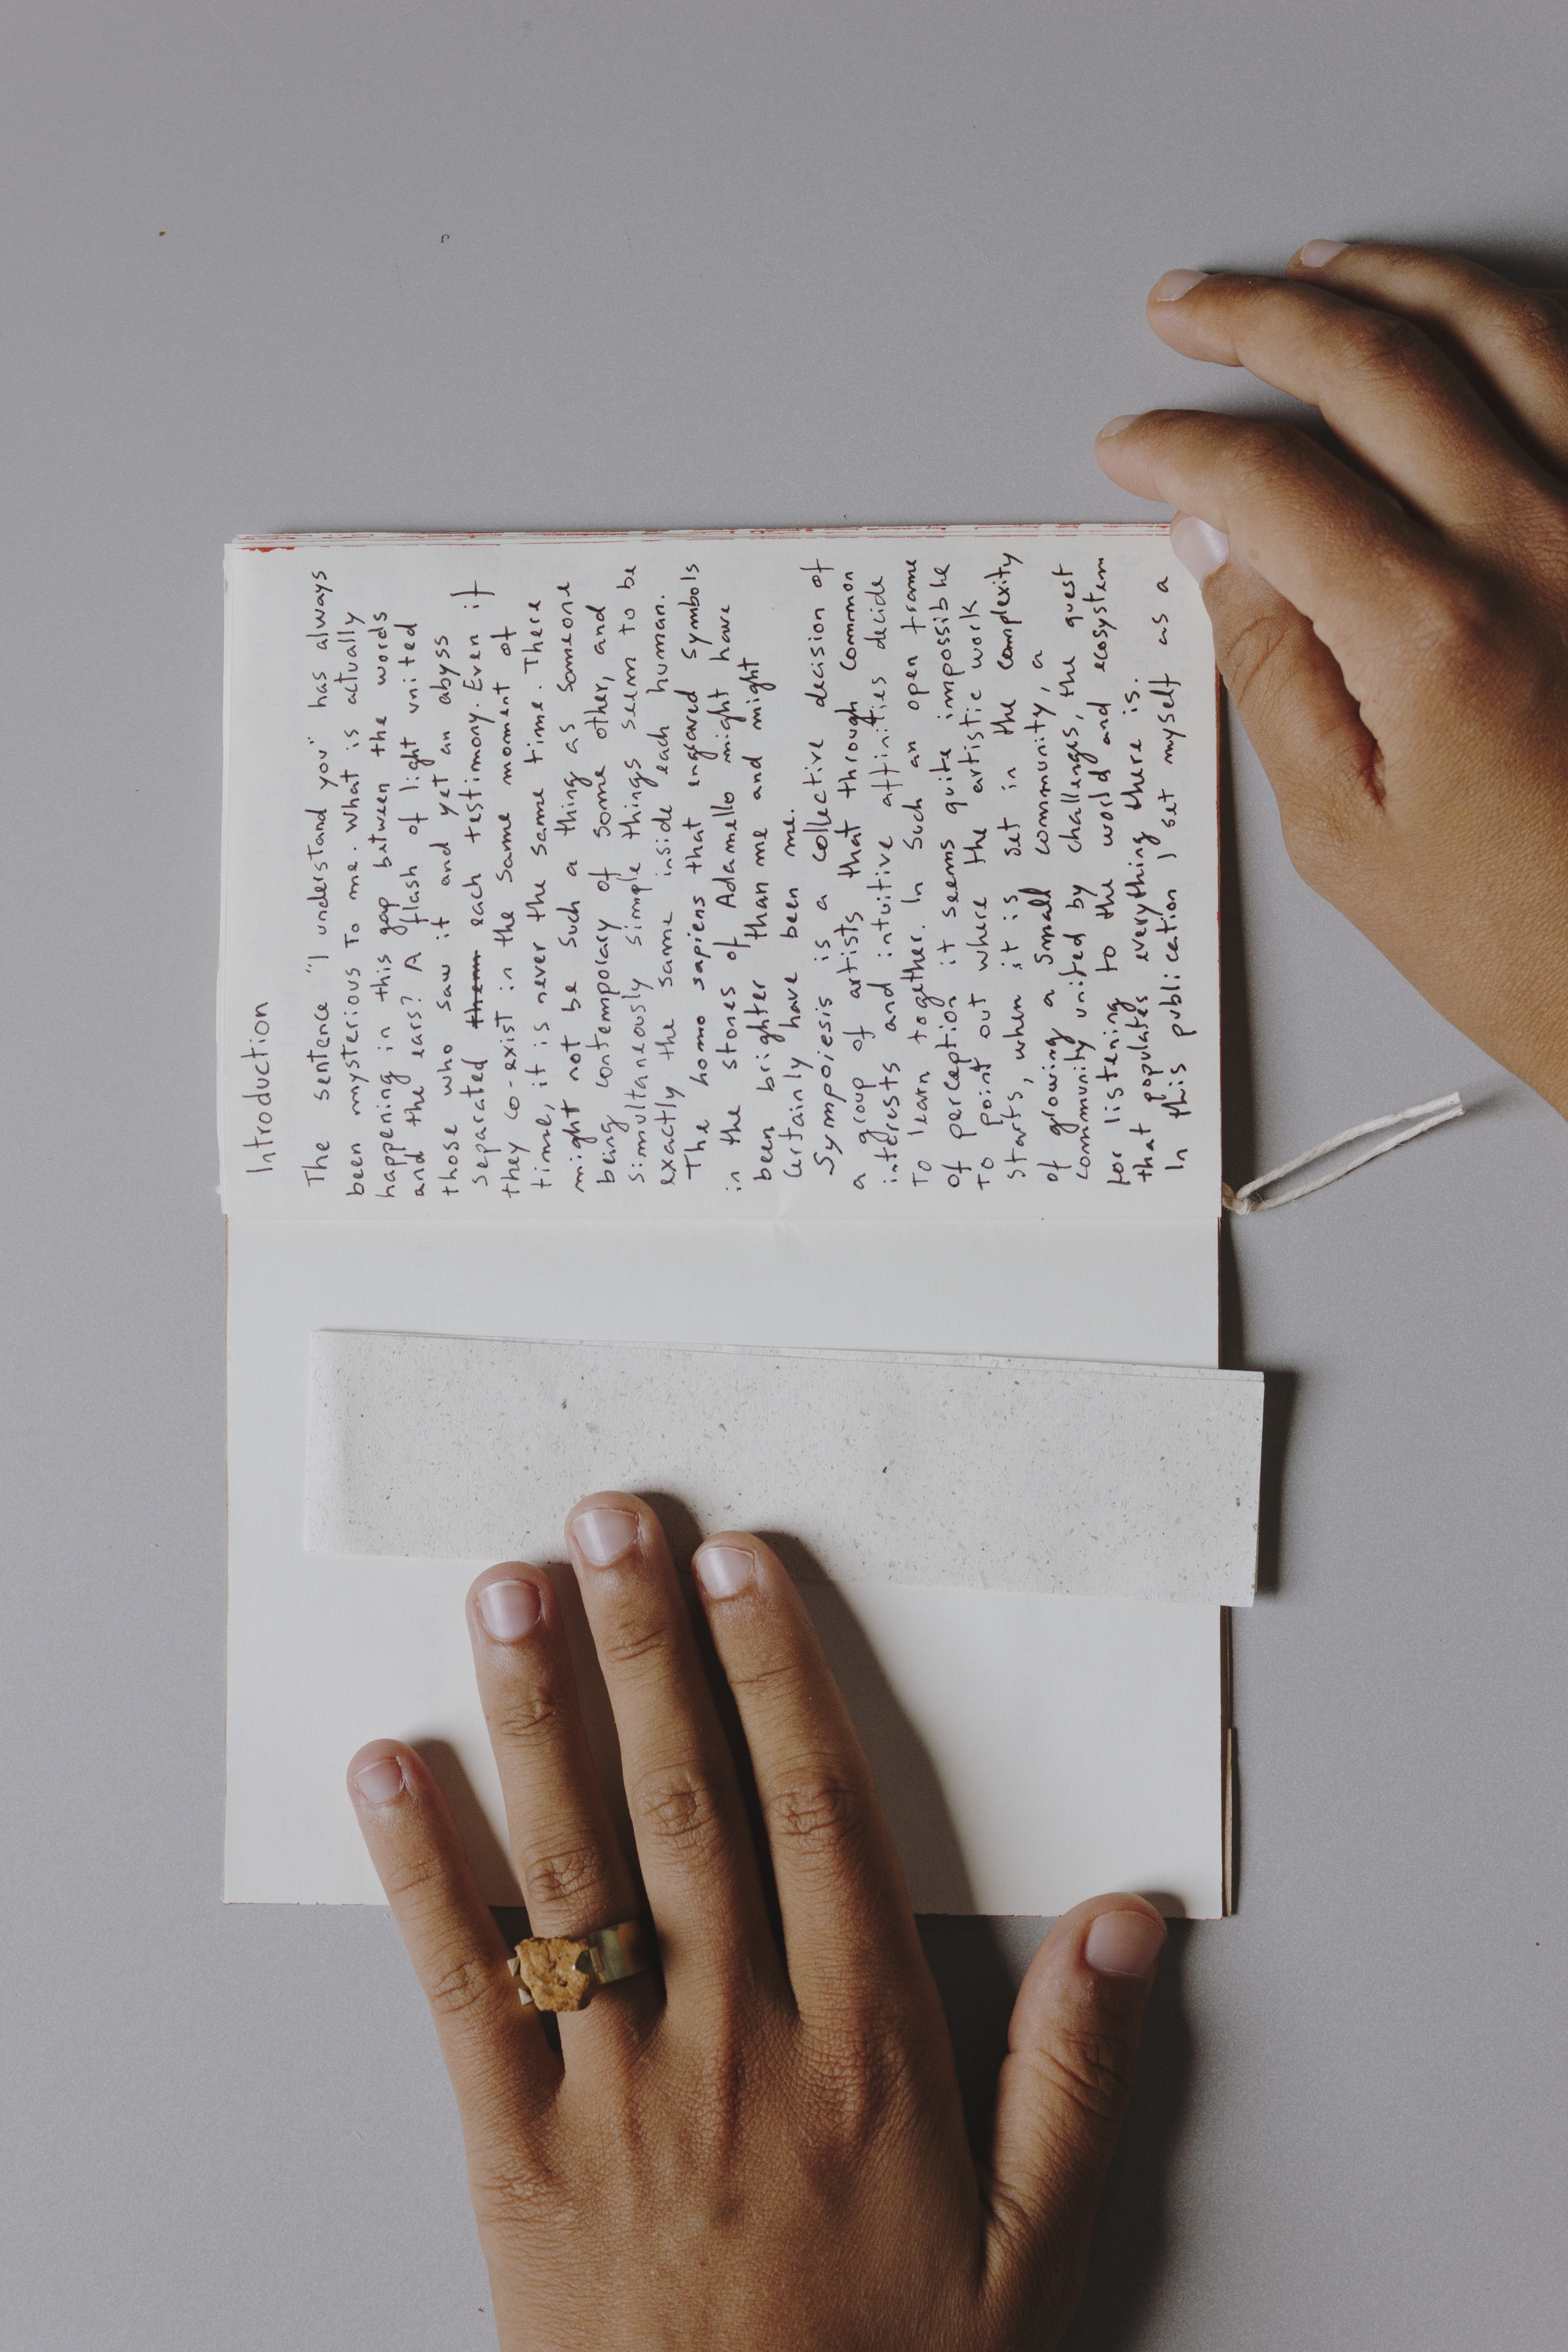 Introduction
The sentence "I understand you" has always
been mysterious to me. What is actually
happening in this gap between the words
and the ears? A flash of light united
those who saw it and yet an abyss
separated them each testimony. Even if
they co-exist in the same moment of
time, it is never the same time. There
might not be such a thing as someone
being contemporary of some other, and
simultaneously simple things seem to be
exactly the same inside each human.
The homo sapiens that engraved symbols
in the stones of Adamello might have
been brighter than me and might
certainly have been me.
Sympoiesis is a collective decision of
a group of artists that through common
interests and intuitive affinities decide
to learn together. In such an open frame
of perception it seems quite impossible
to point out where the artistic work
starts, when it is set in the complexity
of growing a small community, a
community united by challenges, the quest
for listening to the world and ecosystem
that populates everything there is.
In this publication I set myself as a